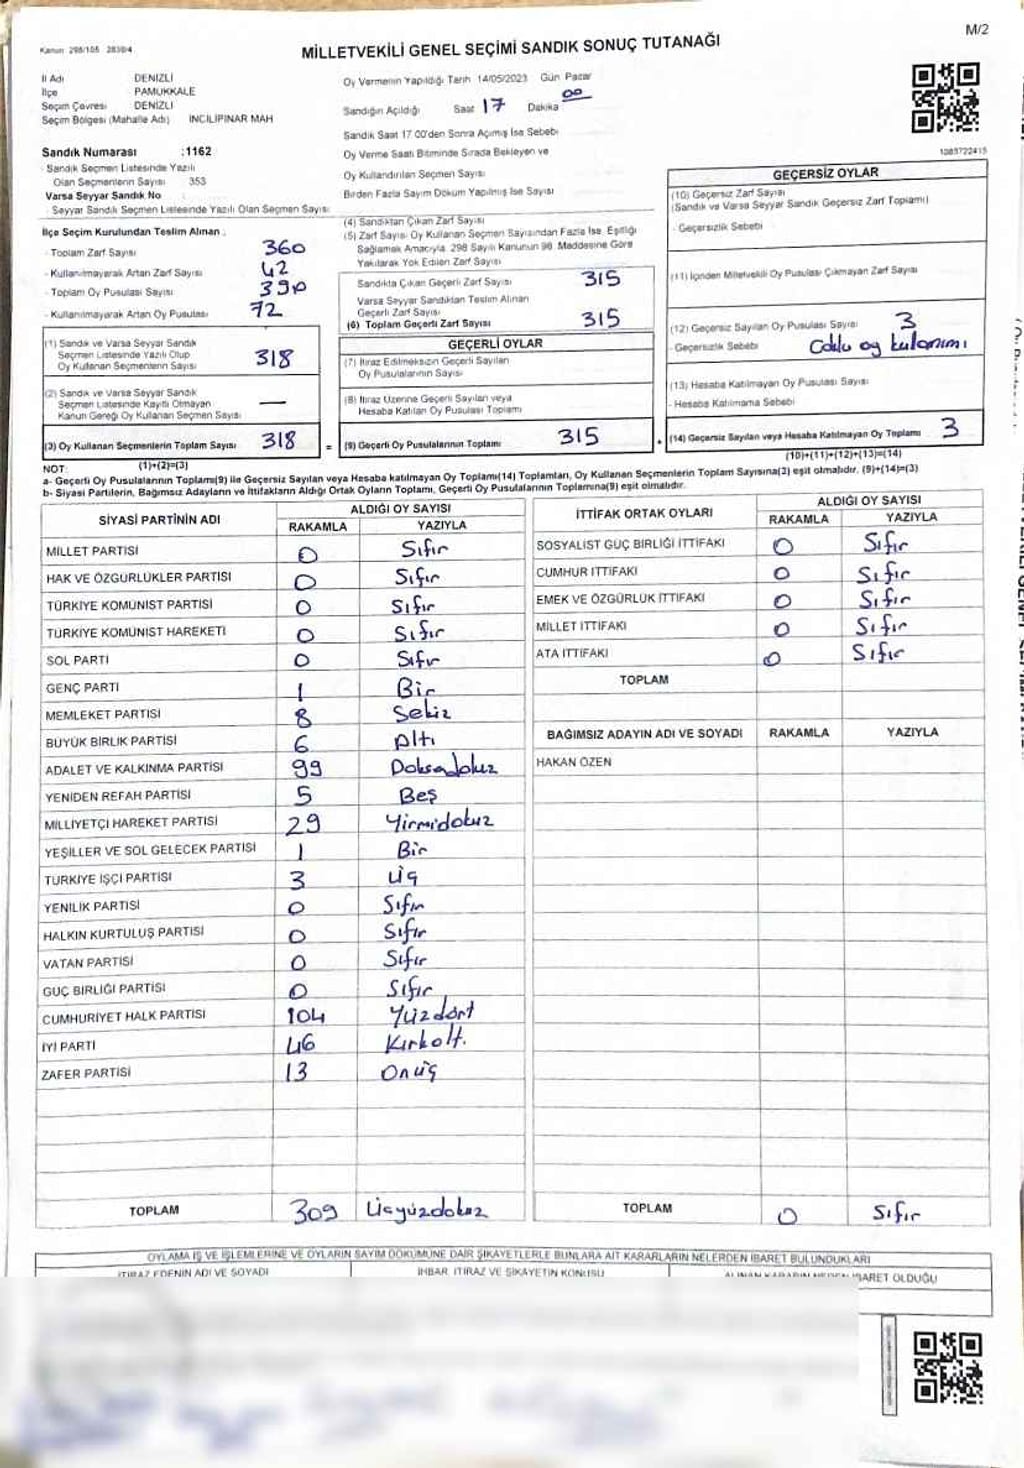 M/2
Kanun 298/105 2839/4
MİLLETVEKİLİ GENEL SEÇİMİ SANDIK SONUÇ TUTANAĞI
İl Adı DENİZLİ
İlçe PAMUKKALE
Seçim Çevresi DENİZLİ
Seçim Bölgesi (Mahalle Adı) İNCİLİPINAR MAH
Oy Vermenin Yapıldığı Tarih 14/05/2023 Gün Pazar
Sandığın Açıldığı Saat 17 Dakika 00
Sandık Saat 17 00'den Sonra Açımış İse Sebebi
Oy Verme Saati Bitiminde Sırada Bekleyen ve
Oy Kullandırılan Seçmen Sayısı
Birden Fazla Sayım Döküm Yapılmış İse Sayısı
1083722415
Sandık Numarası :1162
- Sandık Seçmen Listesinde Yazılı
Olan Seçmenlerin Sayısı 353
Varsa Seyyar Sandık No
- Seyyar Sandık Seçmen Listesinde Yazılı Olan Seçmen Sayısı
İlçe Seçim Kurulundan Teslim Alınan :
- Toplam Zarf Sayısı 360
- Kullanılmayarak Artan Zarf Sayısı 42
- Toplam Oy Pusulası Sayısı 390
- Kullanılmayarak Artan Oy Pusulası 72
(1) Sandık ve Varsa Seyyar Sandık
Seçmen Listesinde Yazılı Olup
Oy Kullanan Seçmenlerin Sayısı 318
(2) Sandık ve Varsa Seyyar Sandık
Seçmen Listesinde Kayıtlı Olmayan
Kanun Gereği Oy Kullanan Seçmen Sayısı —
(3) Oy Kullanan Seçmenlerin Toplam Sayısı 318 =
(4) Sandıktan Çıkan Zarf Sayısı
(5) Zarf Sayısı Oy Kullanan Seçmen Sayısından Fazla İse, Eşitliği
Sağlamak Amacıyla, 298 Sayılı Kanunun 98. Maddesine Göre
Yakılarak Yok Edilen Zarf Sayısı
Sandıkta Çıkan Geçerli Zarf Sayısı 315
Varsa Seyyar Sandıktan Teslim Alınan
Geçerli Zarf Sayısı
(6) Toplam Geçerli Zarf Sayısı 315
GEÇERLİ OYLAR
(7) İtiraz Edilmeksizin Geçerli Sayılan
Oy Pusulalarının Sayısı
(8) İtiraz Üzerine Geçerli Sayılan veya
Hesaba Katılan Oy Pusulası Toplamı
(9) Geçerli Oy Pusulalarının Toplamı 315 +
GEÇERSİZ OYLAR
(10) Geçersiz Zarf Sayısı
(Sandık ve Varsa Seyyar Sandık Geçersiz Zarf Toplamı)
- Geçersizlik Sebebi
(11) İçinden Milletvekili Oy Pusulası Çıkmayan Zarf Sayısı
(12) Geçersiz Sayılan Oy Pusulası Sayısı 3
- Geçersizlik Sebebi Coklu oy kulanımı
(13) Hesaba Katılmayan Oy Pusulası Sayısı
- Hesaba Katılmama Sebebi
(14) Geçersiz Sayılan veya Hesaba Katılmayan Oy Toplamı 3
NOT: (1)+(2)=(3) (10)+(11)+(12)+(13)=(14)
a- Geçerli Oy Pusulalarının Toplamı(9) ile Geçersiz Sayılan veya Hesaba katılmayan Oy Toplamı(14) Toplamları, Oy Kullanan Seçmenlerin Toplam Sayısına(3) eşit olmalıdır. (9)+(14)=(3)
b- Siyasi Partilerin, Bağımsız Adayların ve İttifakların Aldığı Ortak Oyların Toplamı, Geçerli Oy Pusulalarının Toplamına(9) eşit olmalıdır.
SİYASİ PARTİNİN ADI ALDIĞI OY SAYISI
RAKAMLA YAZIYLA
MİLLET PARTİSİ 0 Sıfır
HAK VE ÖZGÜRLÜKLER PARTİSİ 0 Sıfır
TÜRKİYE KOMÜNİST PARTİSİ 0 Sıfır
TÜRKİYE KOMÜNİST HAREKETİ 0 Sıfır
SOL PARTİ 0 Sıfır
GENÇ PARTİ 1 Bir
MEMLEKET PARTİSİ 8 Sekiz
BÜYÜK BİRLİK PARTİSİ 6 Altı
ADALET VE KALKINMA PARTİSİ 99 Doksadokuz
YENİDEN REFAH PARTİSİ 5 Beş
MİLLİYETÇİ HAREKET PARTİSİ 29 Yirmidokuz
YEŞİLLER VE SOL GELECEK PARTİSİ 1 Bir
TÜRKİYE İŞÇİ PARTİSİ 3 Üç
YENİLİK PARTİSİ 0 Sıfır
HALKIN KURTULUŞ PARTİSİ 0 Sıfır
VATAN PARTİSİ 0 Sıfır
GÜÇ BİRLİĞİ PARTİSİ 0 Sıfır
CUMHURİYET HALK PARTİSİ 104 Yüzdört
İYİ PARTİ 46 Kırkaltı
ZAFER PARTİSİ 13 Onüç
TOPLAM 309 Üçyüzdokuz
İTTİFAK ORTAK OYLARI ALDIĞI OY SAYISI
RAKAMLA YAZIYLA
SOSYALİST GÜÇ BİRLİĞİ İTTİFAKI 0 Sıfır
CUMHUR İTTİFAKI 0 Sıfır
EMEK VE ÖZGÜRLÜK İTTİFAKI 0 Sıfır
MİLLET İTTİFAKI 0 Sıfır
ATA İTTİFAKI 0 Sıfır
TOPLAM
BAĞIMSIZ ADAYIN ADI VE SOYADI RAKAMLA YAZIYLA
HAKAN ÖZEN
TOPLAM 0 Sıfır
OYLAMA İŞ VE İŞLEMLERİNE VE OYLARIN SAYIM DÖKÜMÜNE DAİR ŞİKAYETLERLE BUNLARA AİT KARARLARIN NELERDEN İBARET BULUNDUKLARI
İTİRAZ EDENİN ADI VE SOYADI İHBAR, İTİRAZ VE ŞİKAYETİN KONUSU ALINAN KARARIN NEDEN İBARET OLDUĞU